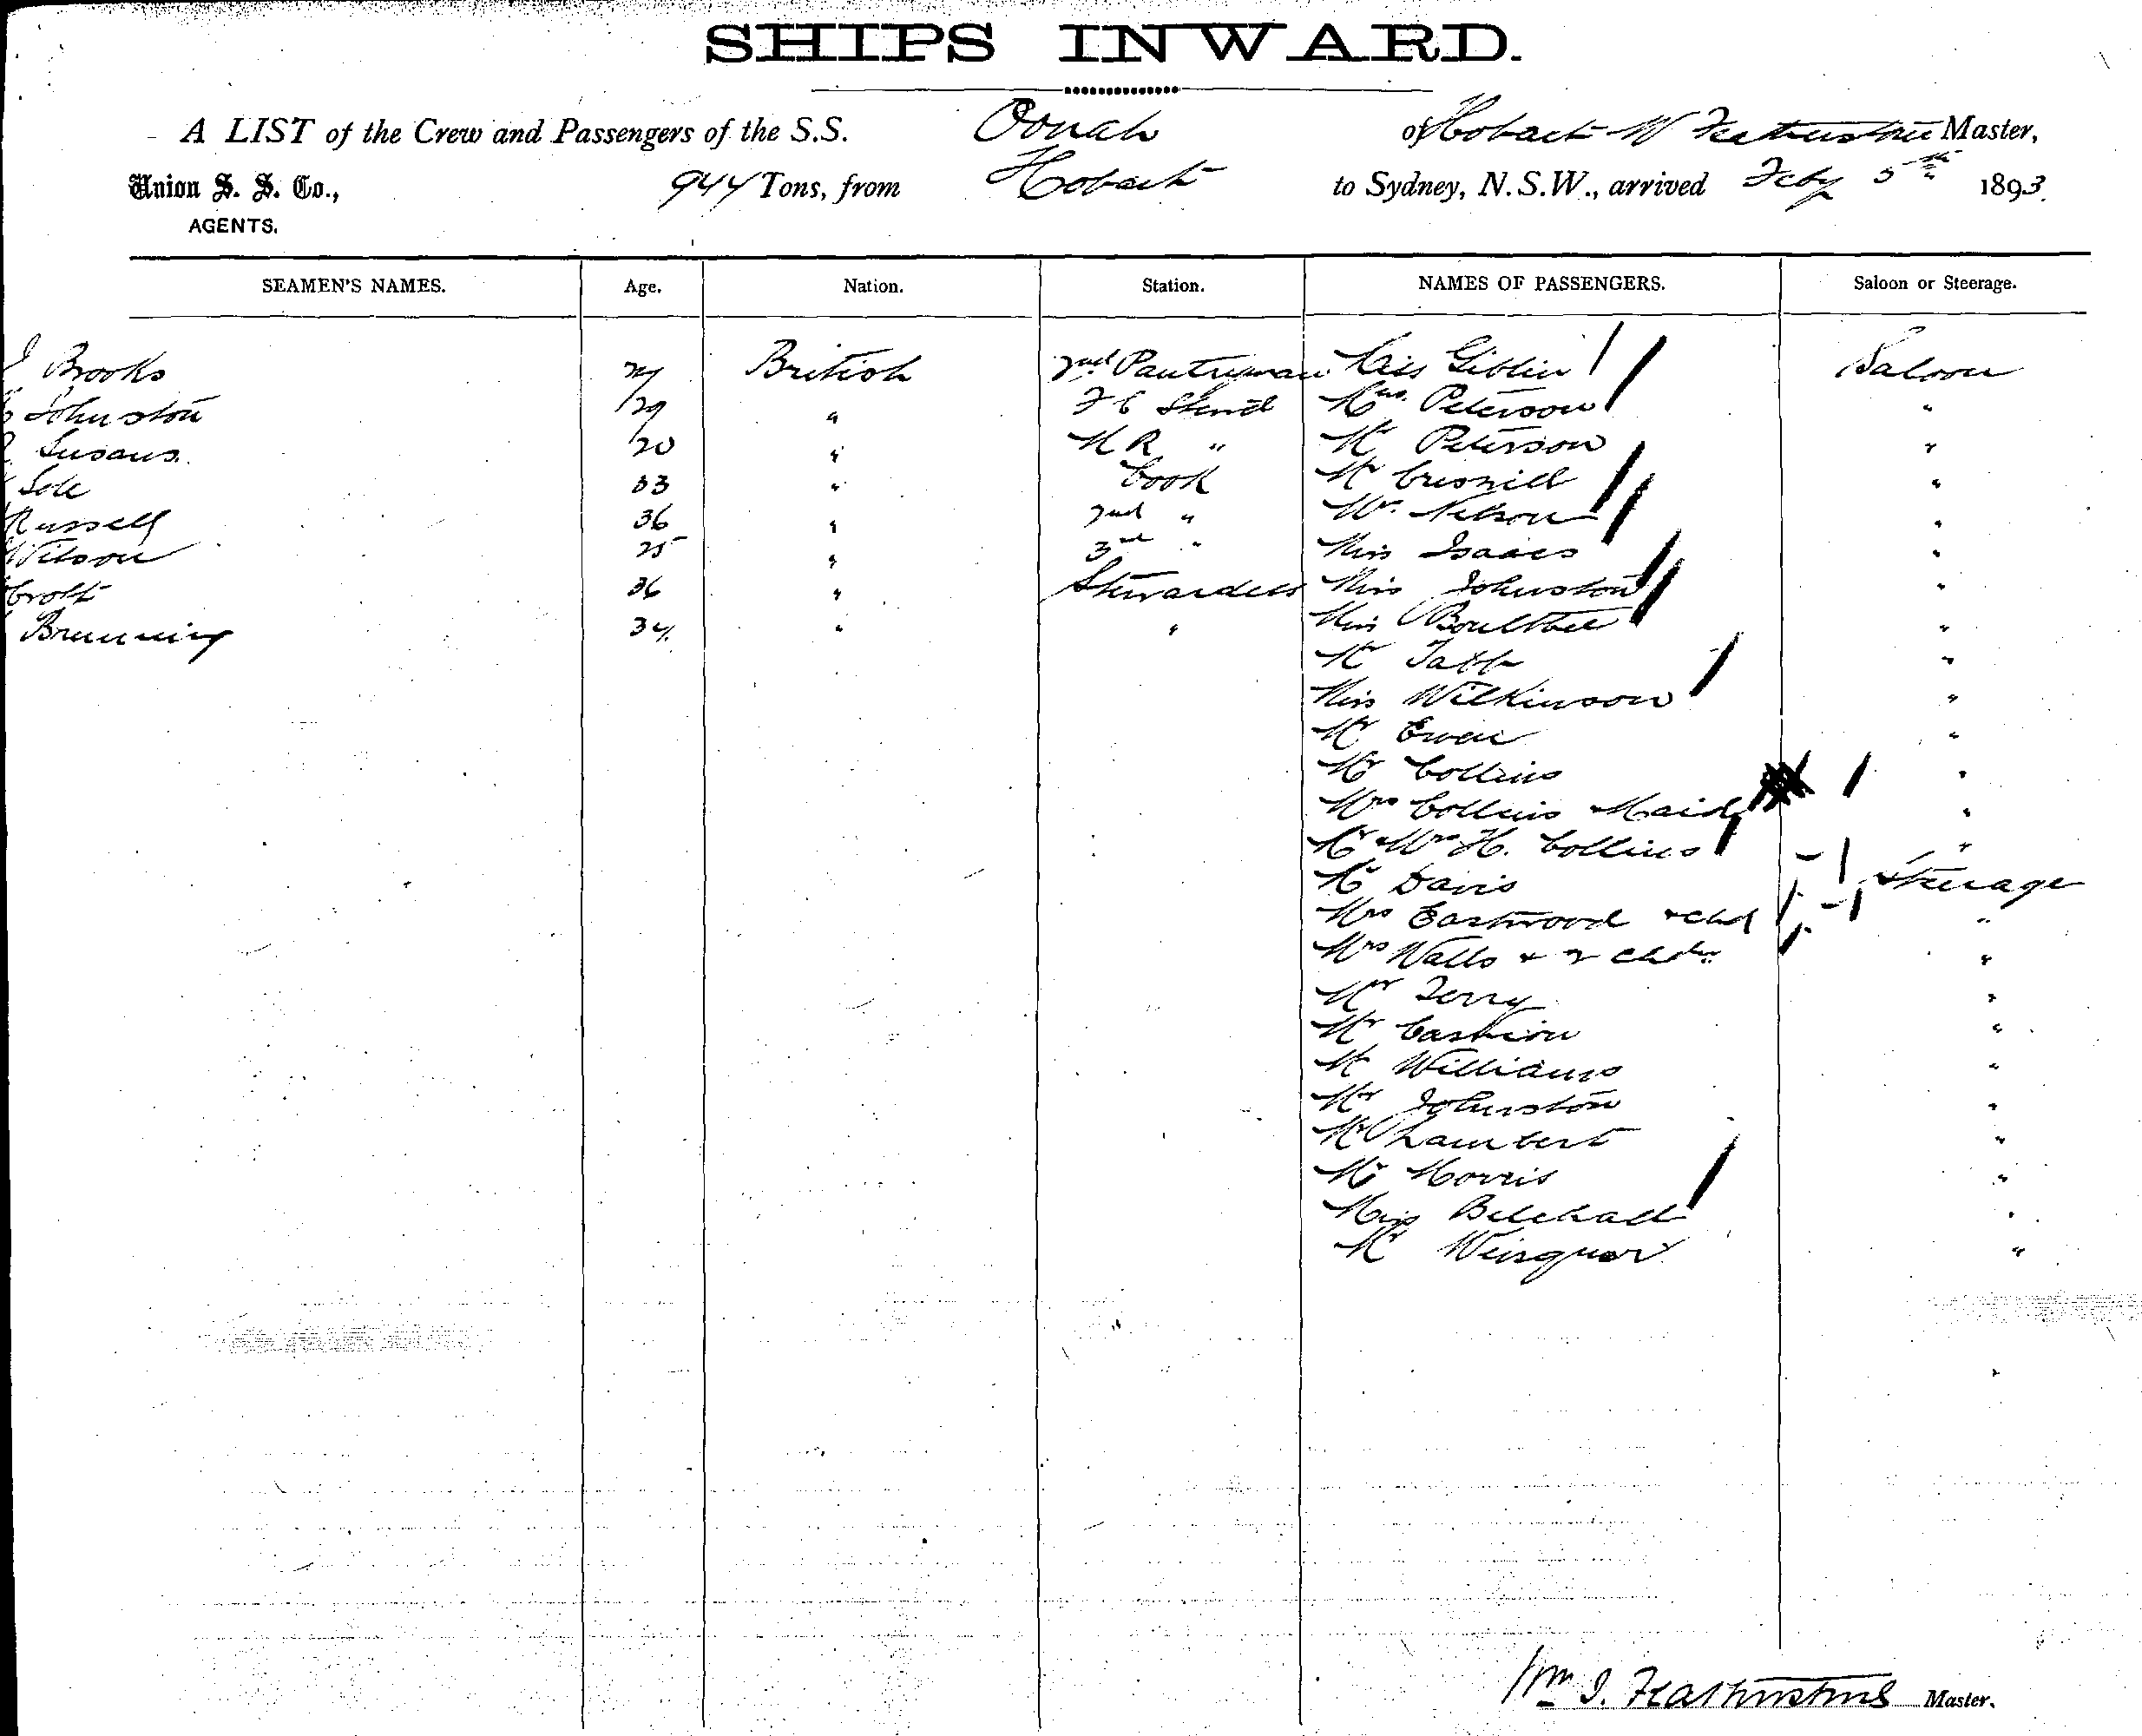 SHIPS INWARD.
A LIST of the Crew and Passengers of the S.S. Oonah of Hobart W Featherstone Master,
Union S. S. Co., 944 Tons, from Hobart to Sydney, N.S.W., arrived Feby 5th 1893.
AGENTS.
SEAMEN'S NAMES. Age. Nation. Station. NAMES OF PASSENGERS. Saloon or Steerage.
Brooks British 2nd Pantryman Miss Giblin Saloon
Johnston 29 " F C Stewd Mrs Peterson "
Susans 20 " M R " Mr Peterson "
Sole 33 " Cook Mr "
Russell 36 " 2nd " Mr Nelson "
Wilson 25 " 3rd " Miss Isaacs "
Croft 36 " Stewardess Miss Johnston "
Brunning 34 " " Miss Boultbee "
Mr Tabb "
Miss Wilkinson "
Mr Ewen "
Mr Collins "
Mrs Collins Maid "
Mr & Mrs H. Collins "
Mr Davis Steerage
Mrs Eastwood & chd "
Mrs Walls & 2 chdn "
Mr Terry "
Mr Cashion "
Mr Williams "
Mr Johnston "
Mr Lambert "
Mr Morris "
Miss "
Mr "
Wm I. Featherstone Master.